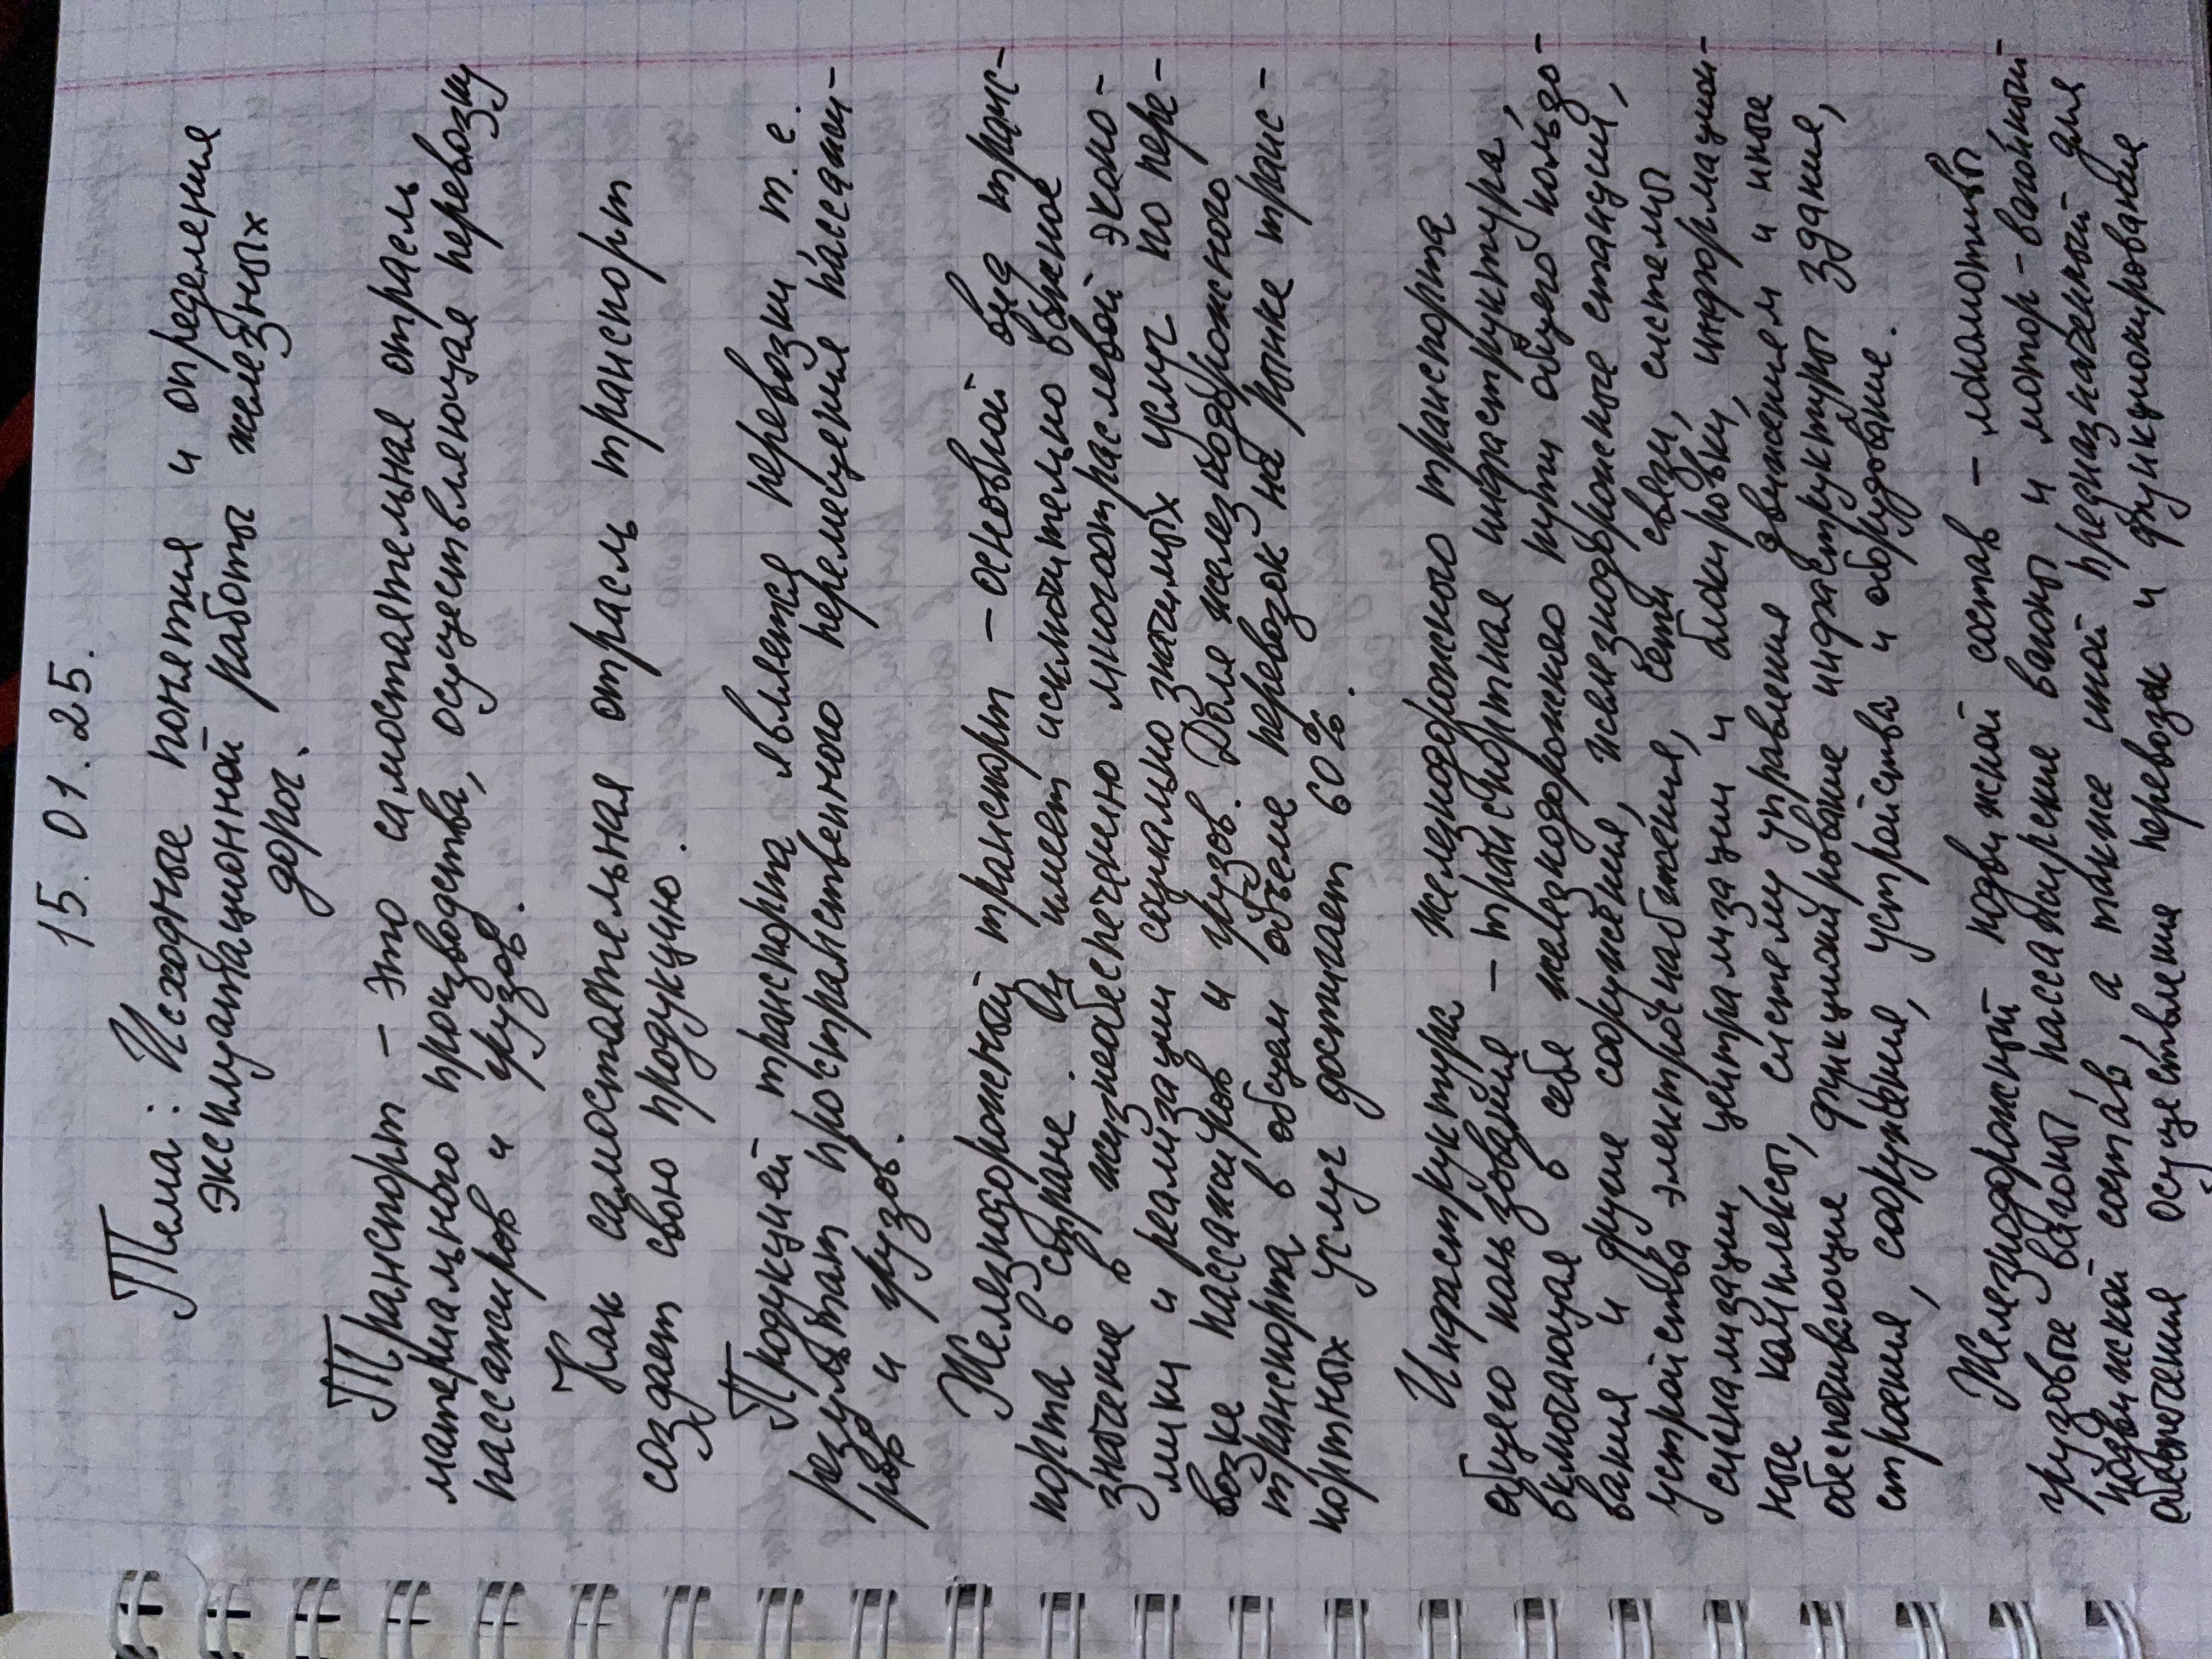 15. 01. 25.
Тема: Исходные понятия и определения
эксплуатационной работы железных
дорог.
Транспорт - это самостоятельная отрасль
материального производства, осуществляющая перевозку
пассажиров и грузов.
Как самостоятельная отрасль транспорт
создает свою продукцию.
Продукцией транспорта является перевозки т.е.
результат пространственного перемещения пассажи-
ров и грузов.
Железнодорожный транспорт - основной вид транс-
порта в стране. Он имеет исключительно важное
значение в жизнеобеспечению многоотраслевой эконо-
мики и реализации социально значимых услуг по пере-
возке пассажиров и грузов. Доля железнодорожного
транспорта в общем объеме перевозок на рынке транс-
портных услуг достигает 60%.
Инфраструктура железнодорожного транспорта
общего пользования - транспортная инфраструктура,
включающая в себя железнодорожного пути общего пользо-
вания и другие сооружения, железнодорожные станции,
устройства электроснабжения, сети связи, системы
сигнализации централизации и блокировки, информацион-
ные комплексы, систему управления движением и иные
обеспечивающие функционирование инфраструктуры здания,
строения, сооружения, устройства и оборудование.
Железнодорожный подвижной состав - локомотивы
грузовые вагоны, пассажирские вагоны и мотор-вагонный
подвижной состав, а также иной предназначенный для
обеспечения осуществления перевозок и функционирование